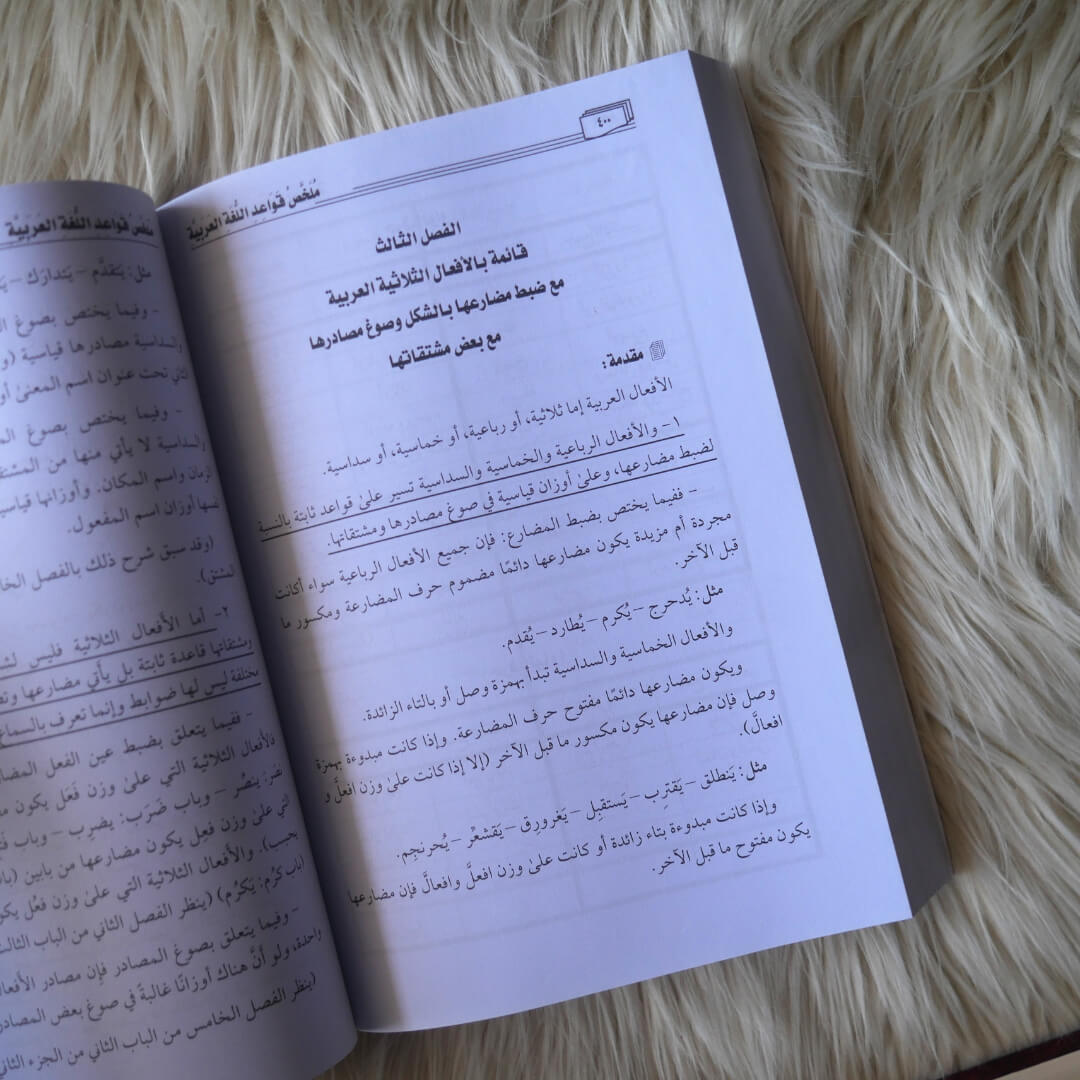 ٤٠٠
مُلَخَّصُ قَوَاعِدِ اللُّغَةِ العَرَبِيَّةِ
الفصل الثالث
قائمة بالأفعال الثلاثية العربية
مع ضبط مضارعها بالشكل وصوغ مصادرها
مع بعض مشتقاتها
مقدمة:
الأفعال العربية إما ثلاثية، أو رباعية، أو خماسية، أو سداسية.
١- والأفعال الرباعية والخماسية والسداسية تسير علىٰ قواعد ثابتة بالنسبة
لضبط مضارعها، وعلىٰ أوزان قياسية في صوغ مصادرها ومشتقاتها.
- ففيما يختص بضبط المضارع: فإن جميع الأفعال الرباعية سواء أكانت
مجردة أم مزيدة يكون مضارعها دائمًا مضموم حرف المضارعة ومكسور ما
قبل الآخر.
مثل: يُدحرج – يُكرم – يُطارد – يُقدم.
والأفعال الخماسية والسداسية تبدأ بهمزة وصل أو بالتاء الزائدة.
ويكون مضارعها دائمًا مفتوح حرف المضارعة. وإذا كانت مبدوءة بهمزة
وصل فإن مضارعها يكون مكسور ما قبل الآخر (إلا إذا كانت علىٰ وزن افعلَّ و
افعالَّ).
مثل: يَنطلق – يَقترِب – يَستقبِل – يَغرورق – يَقشعرِّ – يُحرنجِم.
وإذا كانت مبدوءة بتاء زائدة أو كانت علىٰ وزن افعلَّ وافعالَّ فإن مضارعها
يكون مفتوح ما قبل الآخر.
مُلَخَّصُ قَوَاعِدِ اللُّغَةِ العَرَبِيَّةِ
مثل: يَتقدَّم – يَتدارَك –
- وفيما يختص بصوغ
والسداسية مصادرها قياسية
تحت عنوان اسم المعنىٰ
- وفيما يختص بصوغ
والسداسية لا يأتي منها من
الزمان واسم المكان. وأوزانها
نفسها أوزان اسم المفعول.
(وقد سبق شرح ذلك بالفصل
المشتق).
٢- أما الأفعال الثلاثية فليس
ومشتقاتها قاعدة ثابتة بل يأتي مضارعها
مختلفة ليس لها ضوابط وإنما تعرف
- ففيما يتعلق بضبط عين الفعل
فالأفعال الثلاثية التي علىٰ وزن فَعَل يكون
نصَر: ينصُر – وباب ضَرَب: يضرِب – وباب
التي علىٰ وزن فعِل يكون مضارعها من بابين
يحسِب). والأفعال الثلاثية التي علىٰ وزن فعُل
(باب كرُم: يَكرُم) (ينظر الفصل الثاني من الباب
- وفيما يتعلق بصوغ المصادر فإن مصادر
واحدة، ولو أنَّ هناك أوزانًا غالبةً في صوغ بعض
(ينظر الفصل الخامس من الباب الثاني من الجزء